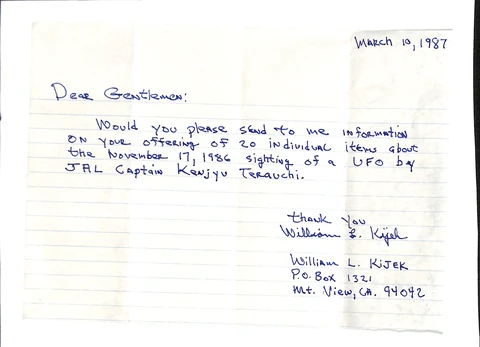 March 10, 1987
Dear Gentlemen:
Would you please send to me information
on your offering of 20 individual items about
the November 17, 1986 sighting of a UFO by
JAL Captain Kenjyu Terauchi.
thank You
William L. Kijek
William L. Kijek
P.O. Box 1321
Mt. View, CA. 94042